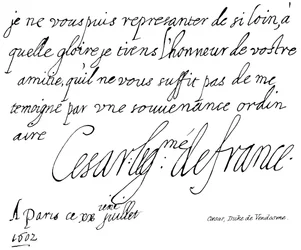 je ne vous puis representer de si loin, à
quelle gloire je tiens l'honneur de vostre
amitie, qu'il ne vous suffit pas de me
temoigné par vne souuenance ordin
aire
Cesar: leg:mé defrance.
A Paris ce xxx ieme Juillet
1602
Cæsar, Duke de Vendosme